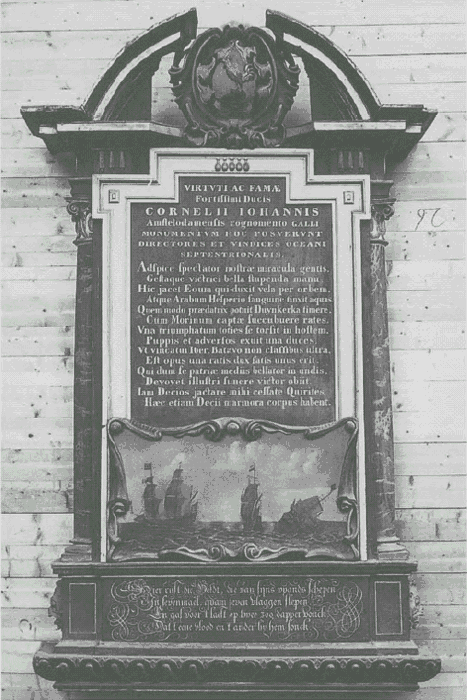 VIRTVTI AC FAMÆ
Fortissimi Ducis
CORNELII IOHANNIS
Amstelodamensis cognomento GALLI
MONUMENTUM HOC POSVERVNT
DIRECTORES ET VINDICES OCEANI
SEPTENTRIONALIS.
Adspice spectator nostræ miracula gentis,
Gestaque victrici bella stupenda manu.
Hic jacet Eoum qui duxit vela per orbem.
Atque Arabum Hesperio sanguine tinxit aquas.
Quem modo prædatrix potuit Duynkerka timere.
Cum Morinum captæ succubuere rates.
Vna triumphatum toties se torsit in hostem.
Puppis et adversos exuit una duces.
Vt vincatur Iber, Batavo non classibus ultra,
Est opus una ratis dux satis unus erit.
Qui dum se patriæ mediis bellator in undis.
Devovet illustri funere victor obit.
Iam Decios jactare mihi cessate Quirites.
Hæc etiam Decii marmora corpus habent.
Hier rust die Heldt, die van sijns vyands schepen
In sevenmael, quam seven vlaggen slepen
En gaf voor 't laest op twee soo dapper vonck
Dat d'eene vlood en d'ander by hem sonck